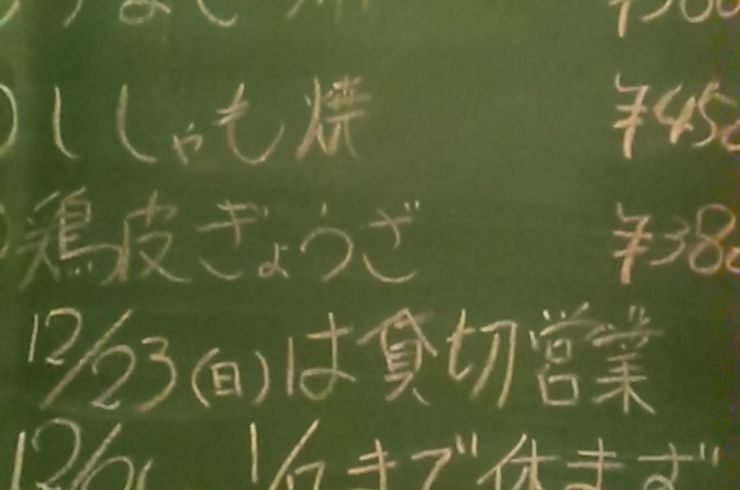 ししゃも焼 ¥450
鶏皮ぎょうざ ¥380
12/23(日)は貸切営業
1/7まで休まず